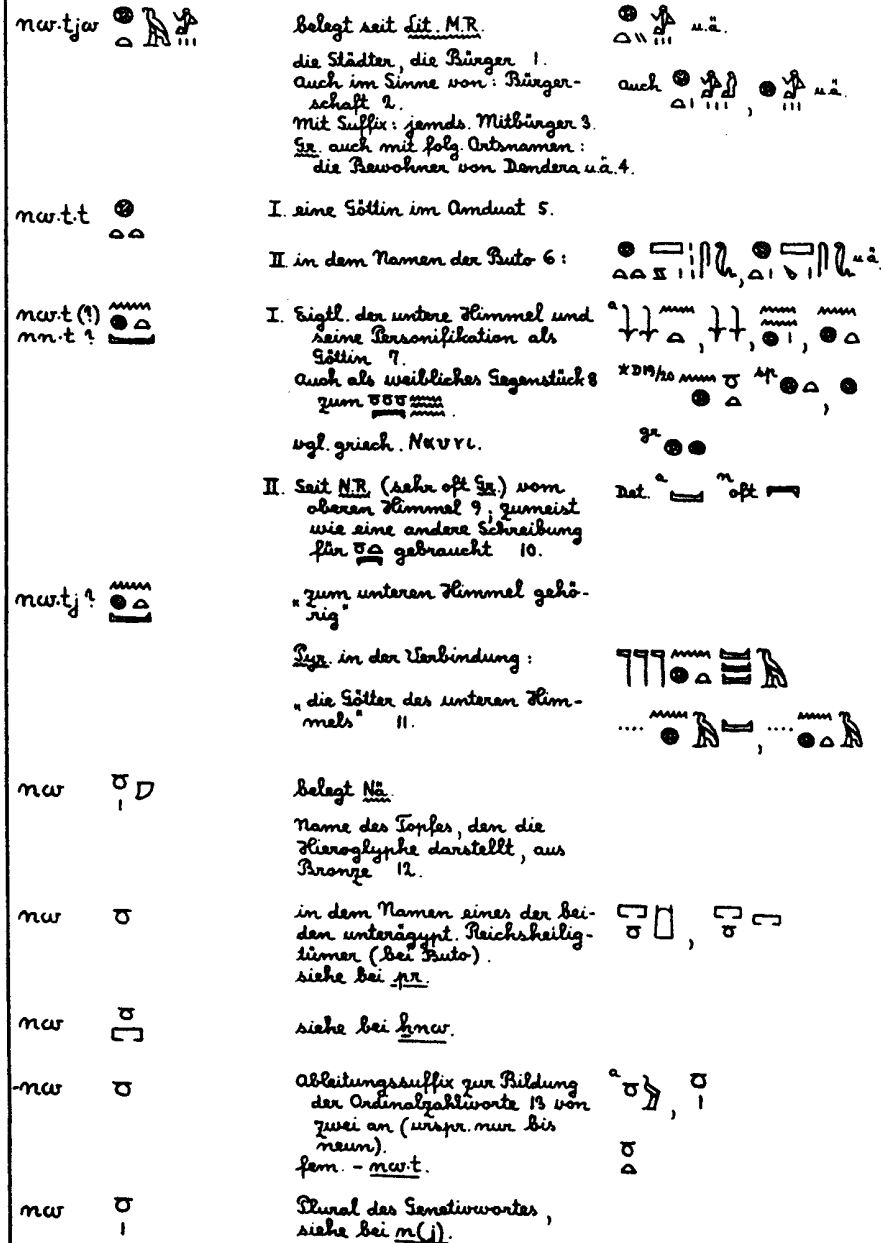 nw.tjw belegt seit Lit. M.R. u.ä.
die Städter, die Bürger 1.
auch im Sinne von: Bürger- auch , u.ä.
schaft 2.
Mit Suffix: jemds. Mitbürger 3.
Gr. auch mit folg. Ortsnamen:
die Bewohner von Dendera u.ä. 4.
nw.t.t I. eine Göttin im Amduat 5.
II. in dem Namen der Buto 6: , u.ä.
nw.t (?) I. Eigtl. der untere Himmel und a , , ,
nn.t ? seine Personifikation als
Göttin 7.
auch als weibliches Gegenstück 8 *D19/20 sp ,
zum .
vgl. griech. Ναυνι. gr
II. Seit N.R. (sehr oft Gr.) vom Det. a n oft
oberen Himmel 9; zumeist
wie eine andere Schreibung
für gebraucht 10.
nw.tj ? „zum unteren Himmel gehö-
rig“
Pyr. in der Verbindung:
„die Götter des unteren Him-
mels“ 11. .... , ....
nw belegt Nä.
Name des Topfes, den die
Hieroglyphe darstellt, aus
Bronze 12.
nw in dem Namen eines der bei-
den unterägypt. Reichsheilig- ,
tümer (bei Buto).
siehe bei pr.
nw siehe bei ẖnw.
-nw Ableitungssuffix zur Bildung a ,
der Ordinalzahlworte 13 von
zwei an (urspr. nur bis
neun).
fem. - nw.t.
nw Plural des Genetivwortes,
siehe bei n(j).